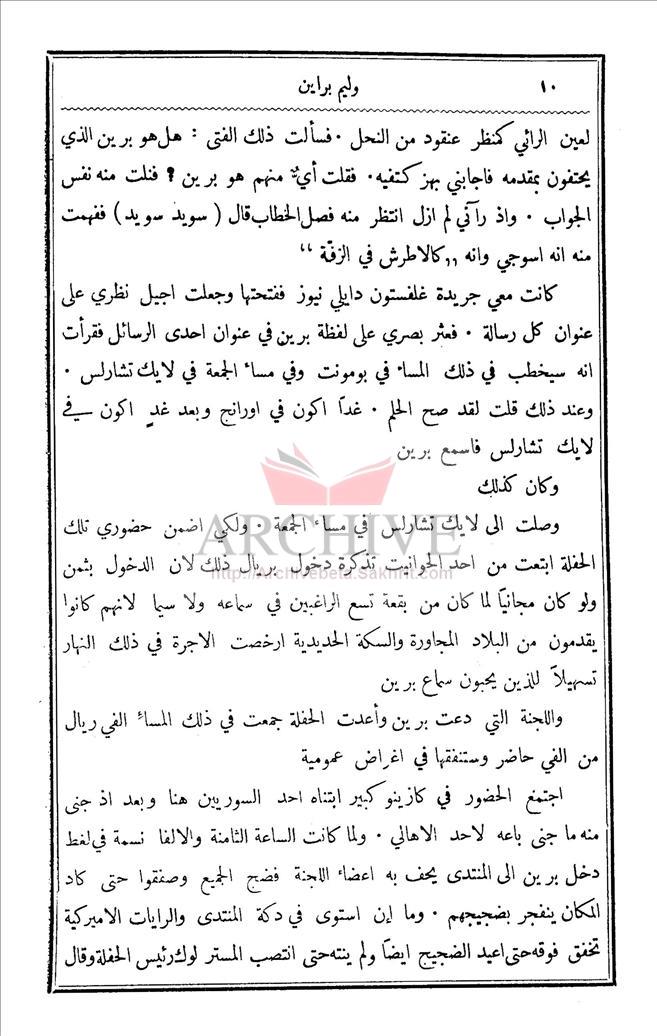 ١٠
وليم براين
لعين الرائي كمنظر عنقود من النحل ٠ فسألت ذلك الفتى : هل هو برين الذي
يحتفون بمقدمه فاجابني بهز كتفيه ٠ فقلت أيٌّ منهم هو برين ؟ فنلت منه نفس
الجواب ٠ واذ رآني لم ازل انتظر منه فصل الخطاب قال ( سويد سويد ) ففهمت
منه انه اسوجي وانه „ كالاطرش في الزفّة “
كانت معي جريدة غلفستون دايلي نيوز ففتحتها وجعلت اجيل نظري على
عنوان كل رسالة ٠ فعثر بصري على لفظة برين في عنوان احدى الرسائل فقرأت
انه سيخطب في ذلك المساء في بومونت وفي مساء الجمعة في لايك تشارلس ٠
وعند ذلك قلت لقد صح الحلم ٠ غداً اكون في اورانج وبعد غدٍ اكون في
لايك تشارلس فاسمع برين
وكان كذلك
وصلت الى لايك تشارلس في مساء الجمعة ٠ ولكي اضمن حضوري تلك
ARCHIVE
الحفلة ابتعت من احد الحوانيت تذكرة دخول بريال ذلك لان الدخول بثمن
http://Archivebeta.Sakhrit.com
ولو كان مجانيّاً لما كان من بقعة تسع الراغبين في سماعه ولا سيما لانهم كانوا
يقدمون من البلاد المجاورة والسكة الحديدية ارخصت الاجرة في ذلك النهار
تسهيلاً للذين يحبون سماع برين
واللجنة التي دعت برين وأعدت الحفلة جمعت في ذلك المساء الفي ريال
من الفي حاضر وستنفقها في اغراض عمومية
اجتمع الحضور في كازينو كبير ابتناه احد السوريين هنا وبعد اذ جنى
منه ما جنى باعه لاحد الاهالي ٠ ولما كانت الساعة الثامنة والالفا نسمة في لغط
دخل برين الى المنتدى يحف به اعضاء اللجنة فضج الجميع وصفقوا حتى كاد
المكان ينفجر بضجيجهم ٠ وما إن استوى في دكة المنتدى والرايات الاميركية
تخفق فوقه حتى اعيد الضجيج ايضاً ولم ينته حتى انتصب المستر لوك رئيس الحفلة وقال